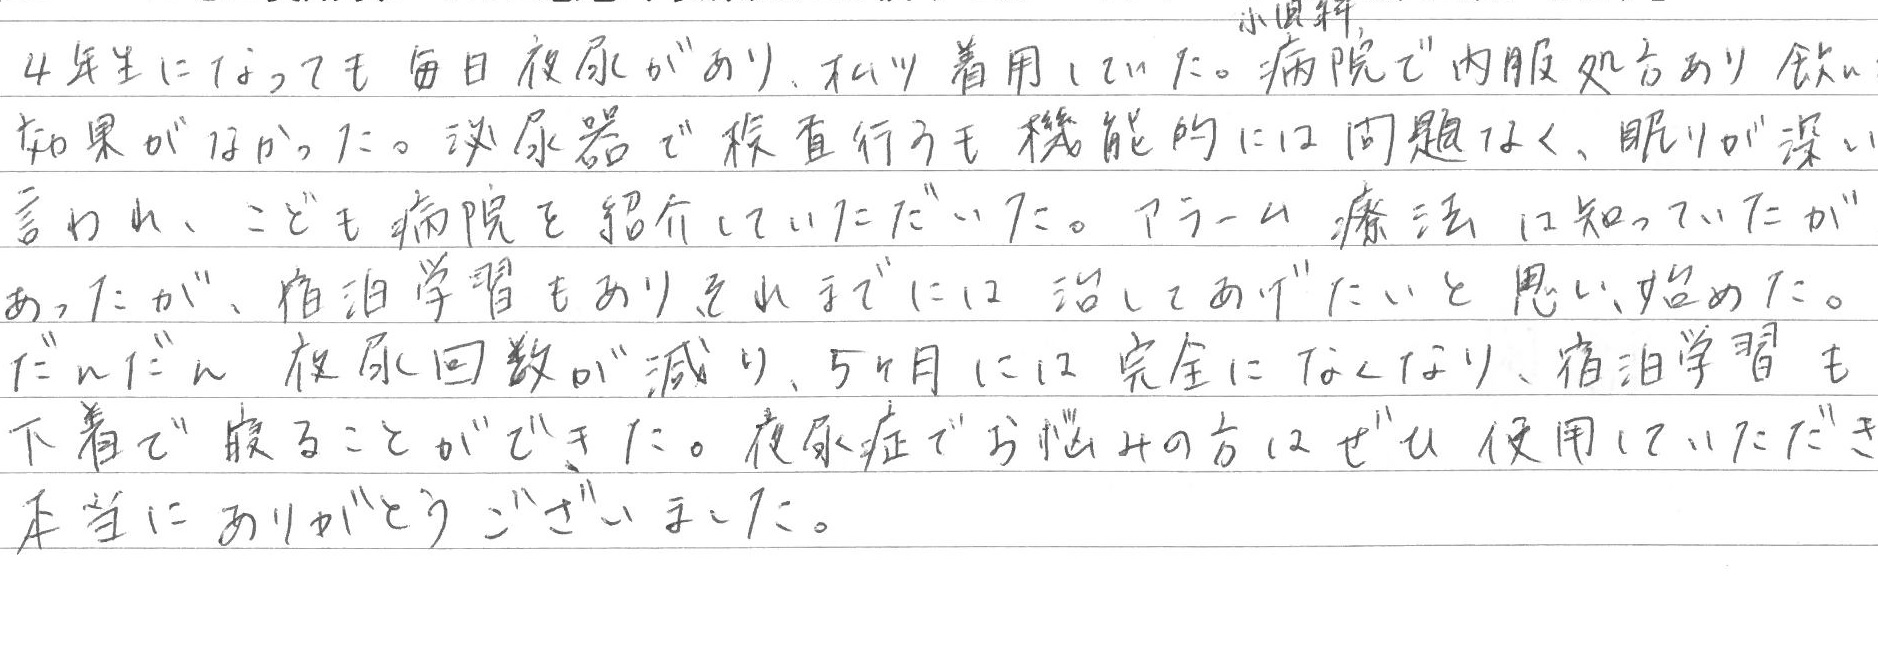 小児科
4年生になっても毎日夜尿があり、オムツ着用していた。病院で内服処方あり 飲ん
効果がなかった。泌尿器で検査行うも機能的には問題なく、眠りが深い
言われ、こども病院を紹介していただいた。アラーム療法は知っていたが
あったが、宿泊学習もありそれまでには治してあげたいと思い、始めた。
だんだん夜尿回数が減り、5ヶ月には完全になくなり、宿泊学習も
下着で寝ることができた。夜尿症でお悩みの方はぜひ使用していただき
本当にありがとうございました。